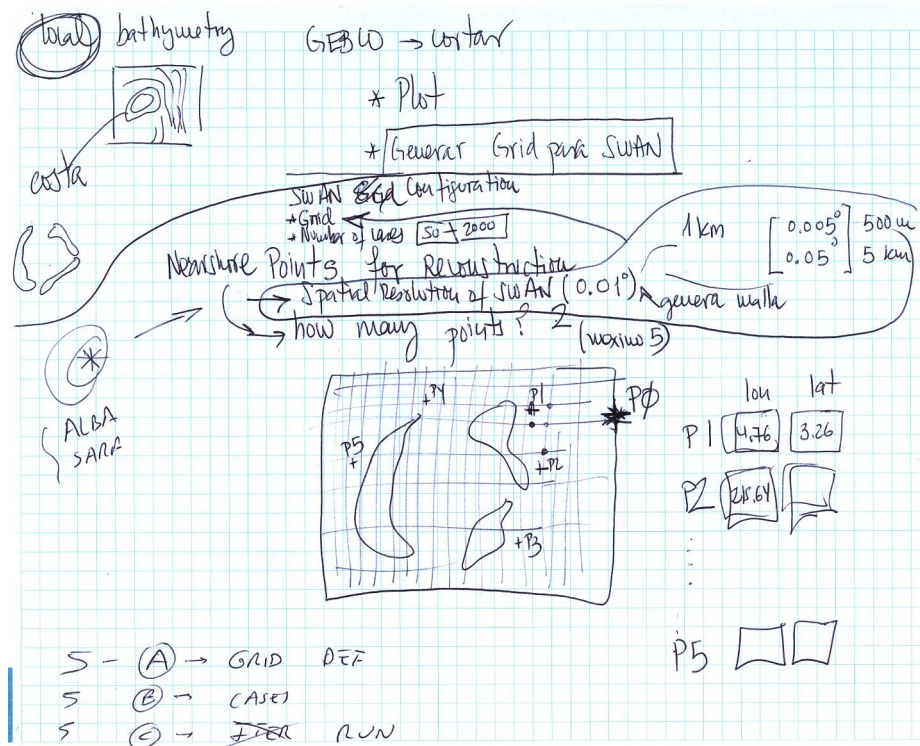 local bathymetry
GEBCO → cortar
* Plot
* Generar Grid para SWAN
costa
SWAN Configuration
* Grid
* Number of cases 50 - 2000
1 km
0.005° 500 m
0.05° 5 km
Nearshore Points for Reconstruction
→ Spatial Resolution of SWAN (0.01°) genera malla
→ how many points? 2
(maximo 5)
ALBA
SARA
P4
P1
PØ
P5
P2
P3
lon lat
P1 4.76 3.26
P2 215.64
P5
5 - A → GRID DEF
5 B → CASES
5 C → RUN